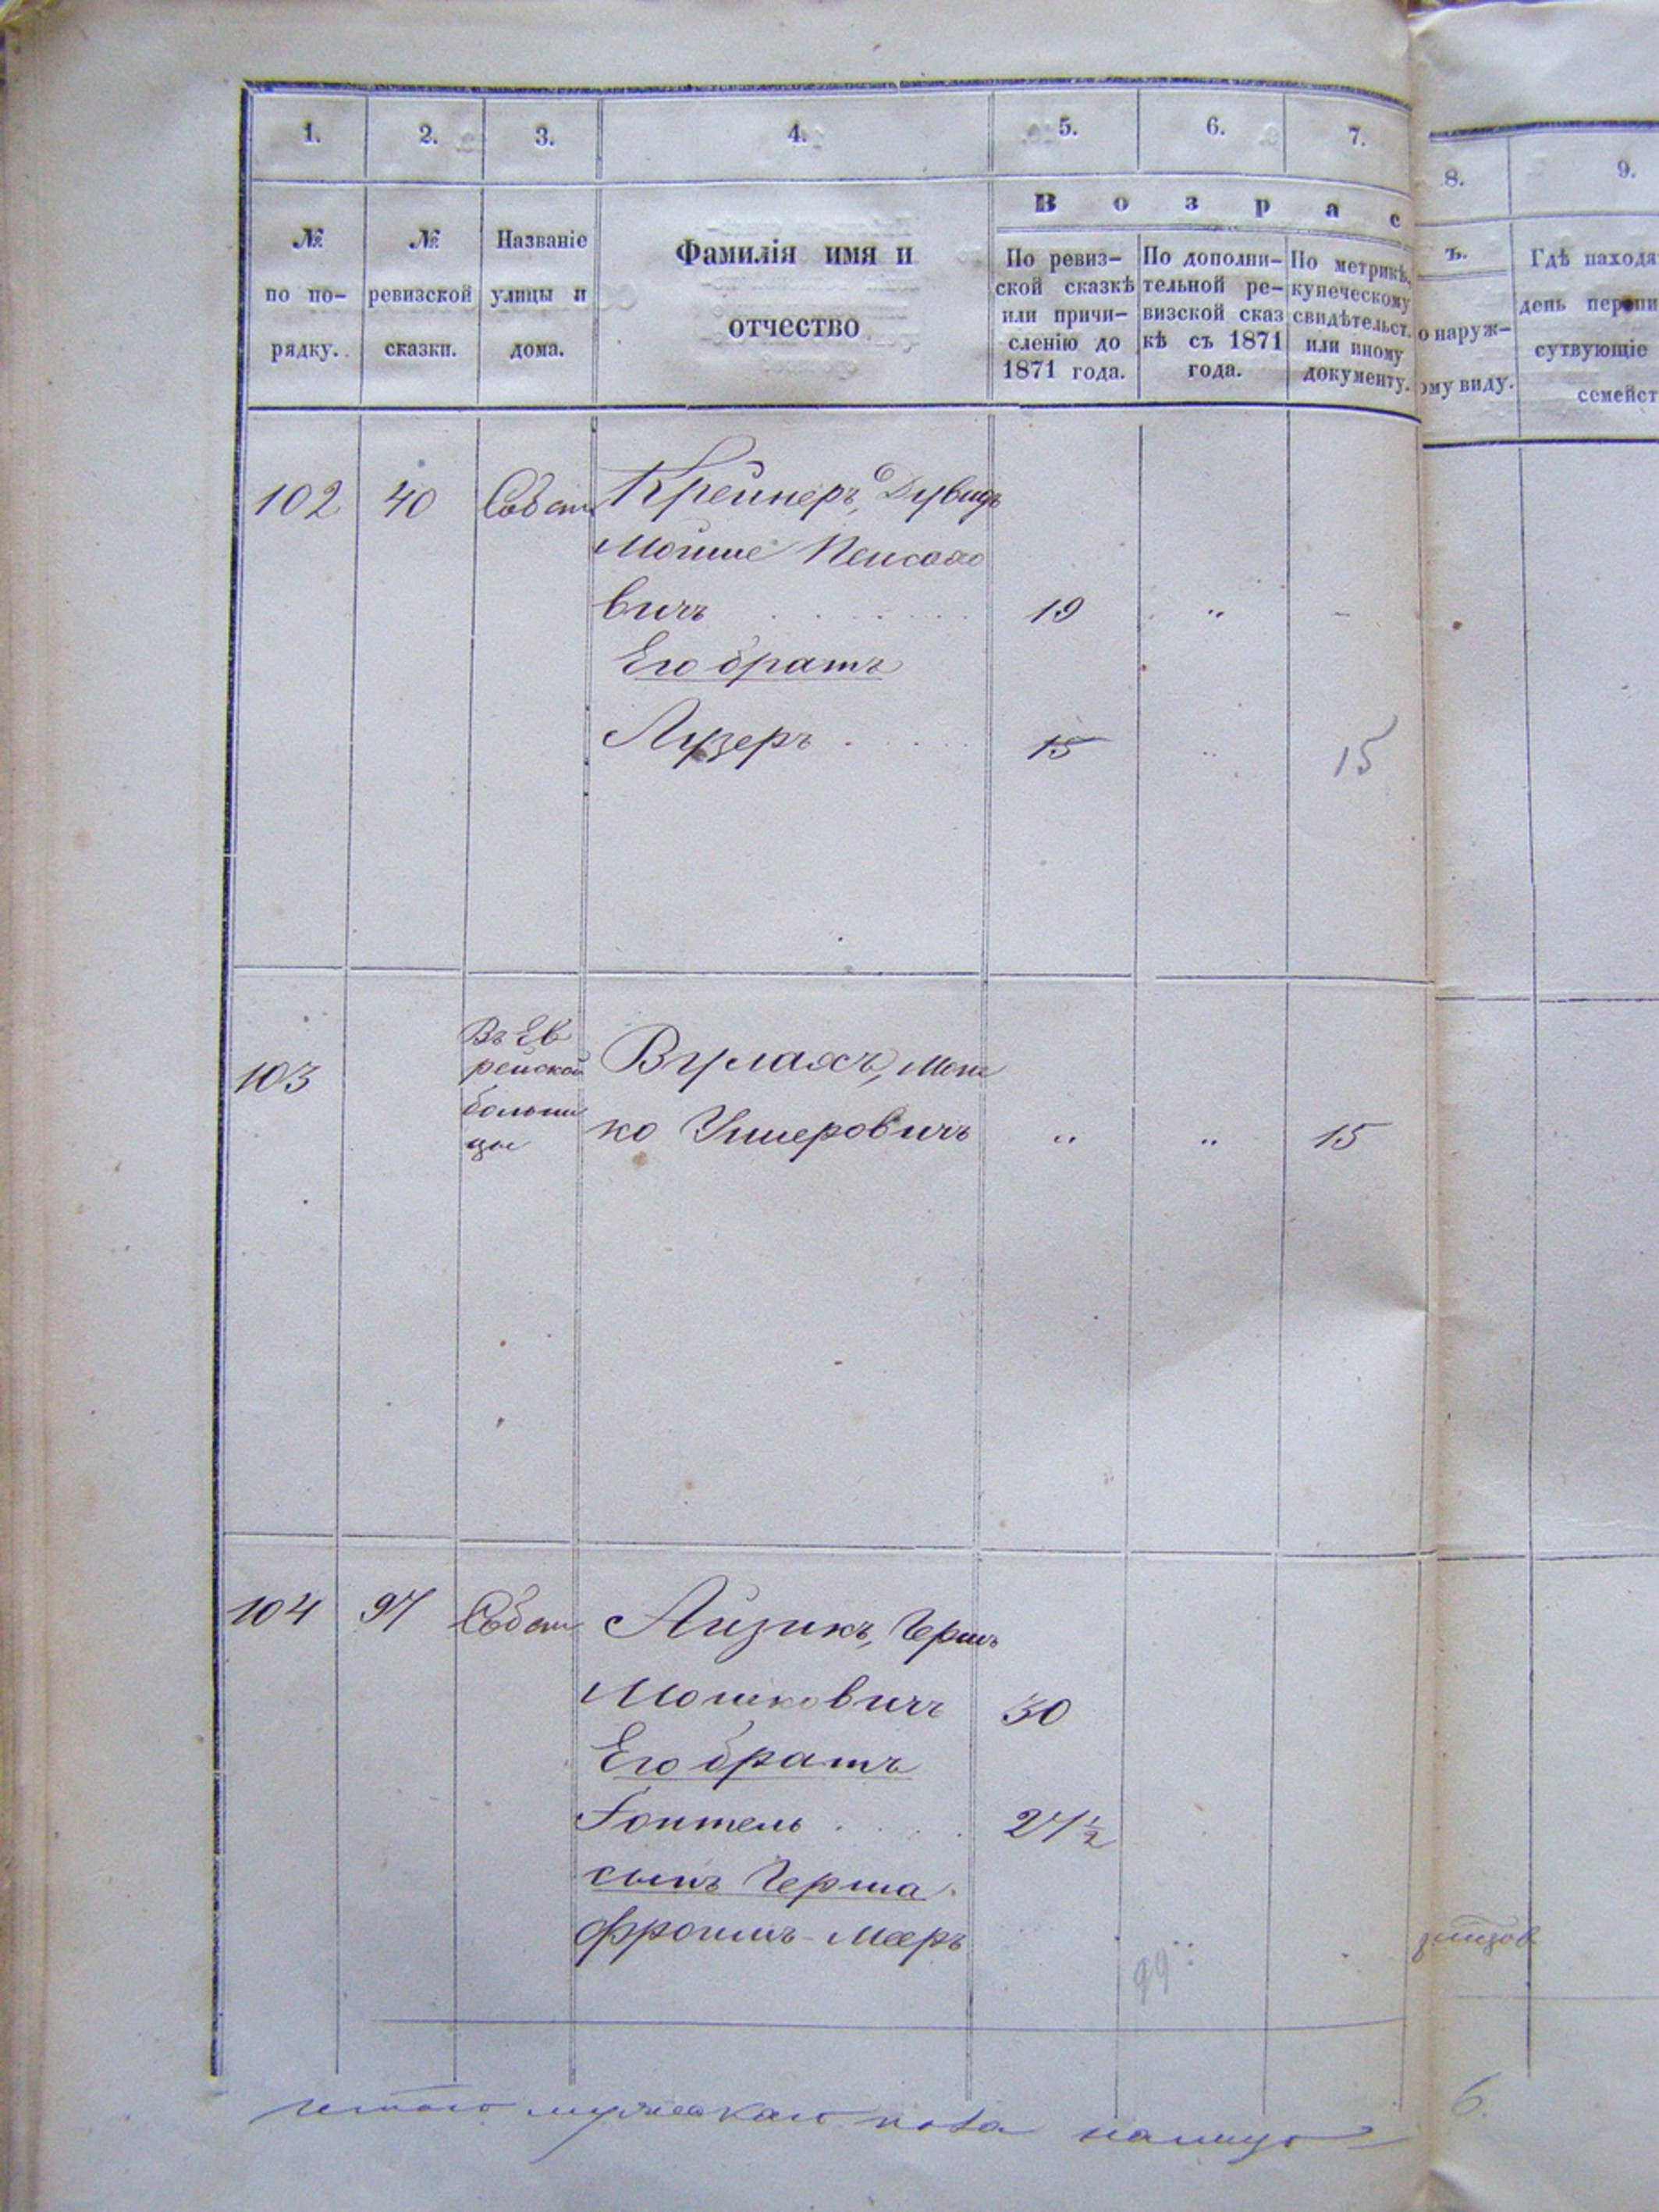 1. 2. 3. 4. 5. 6. 7. 8. 9.
В о з р а с ъ.
№ по по- рядку.
№ ревизской сказки.
Названіе улицы и дома.
Фамилія имя и
отчество
По ревиз-
ской сказкѣ
или причи-
сленію до
1871 года.
По дополни-
тельной ре-
визской сказ
кѣ съ 1871
года.
По метрикѣ,
купеческому
свидѣтельст.
или иному
документу.
о наруж-
ому виду.
Гдѣ находя
день перепи
сутвующіе
семейст
102 40 Собст Крейнеръ, Дувидъ
Мойше Пейсахо
вичъ 19 " -
Его братъ
Лузеръ 15 " 15
103 Въ Ев
рейской
больни
цы
Вулахъ, Мош
ко Ушеровичъ " " 15
104 97 Собст Айзикъ, Гершъ
Мошковичъ 30
Его братъ
27 ½
сынъ Герша
Фроимъ-Мееръ
99
мужескаго пола
6.